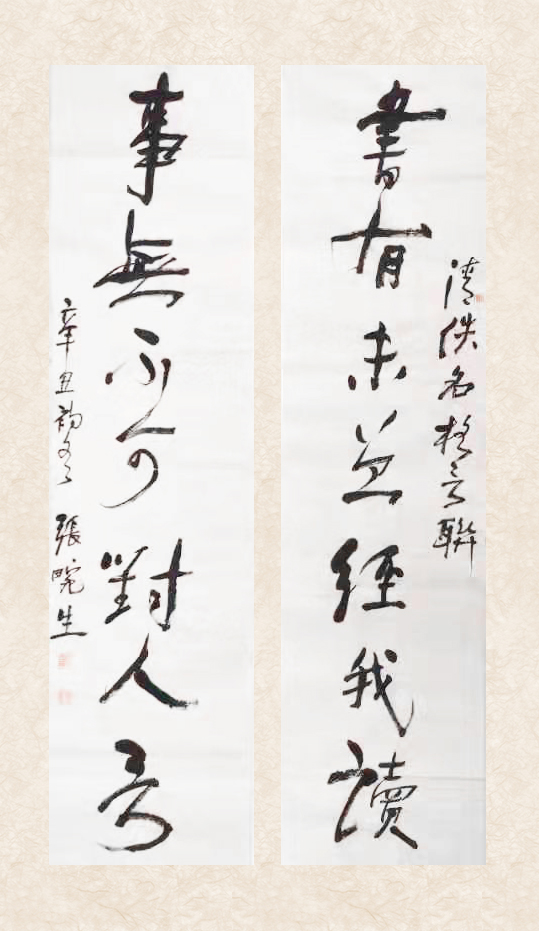 清佚名格言聯
書有未曾經我讀
事無不可對人言
辛丑初冬 張晼生